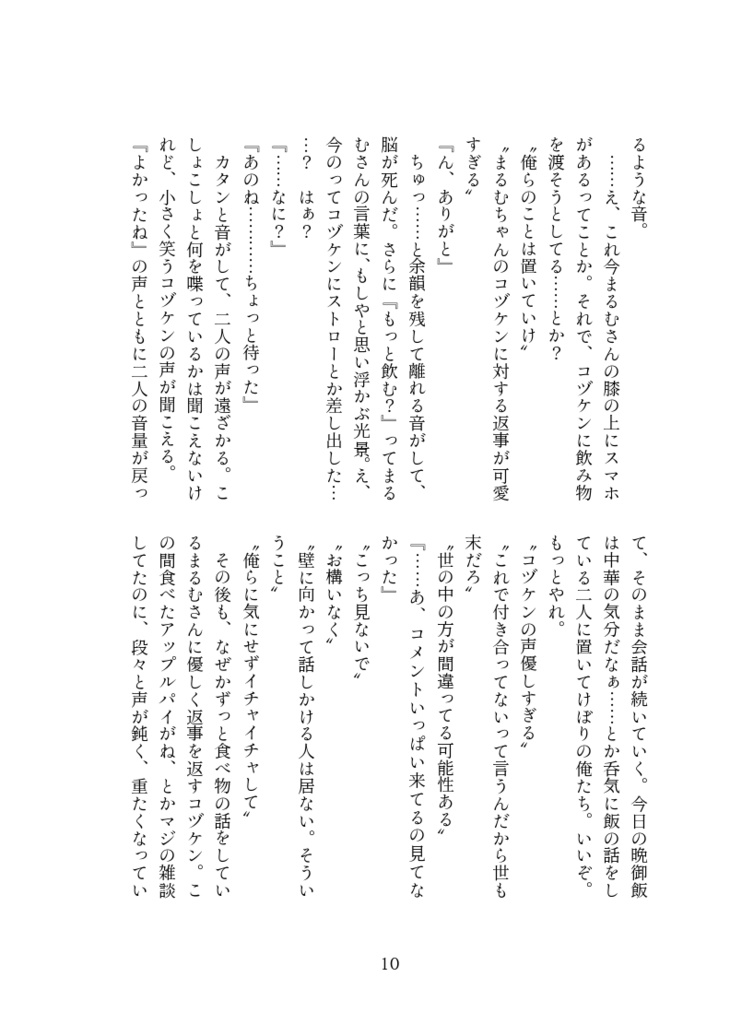 るような音。
　……え、これ今まるむさんの膝の上にスマホ
があるってことか。それで、コヅケンに飲み物
を渡そうとしてる……とか？
〝俺らのことは置いていけ〟
〝まるむちゃんのコヅケンに対する返事が可愛
すぎる〟
『ん、ありがと』
　ちゅっ……と余韻を残して離れる音がして、
脳が死んだ。さらに『もっと飲む？』ってまる
むさんの言葉に、もしやと思い浮かぶ光景。え、
今のってコヅケンにストローとか差し出した…
…？　はぁ？
『……なに？』
『あのね…………ちょっと待った』
　カタンと音がして、二人の声が遠ざかる。こ
しょこしょと何を喋っているかは聞こえないけ
れど、小さく笑うコヅケンの声が聞こえる。
『よかったね』の声とともに二人の音量が戻っ
て、そのまま会話が続いていく。今日の晩御飯
は中華の気分だなぁ……とか呑気に飯の話をし
ている二人に置いてけぼりの俺たち。いいぞ。
もっとやれ。
〝コヅケンの声優しすぎる〟
〝これで付き合ってないって言うんだから世も
末だろ〟
〝世の中の方が間違ってる可能性ある〟
『……あ、コメントいっぱい来てるの見てな
かった』
〝こっち見ないで〟
〝お構いなく〟
〝壁に向かって話しかける人は居ない。そうい
うこと〟
〝俺らに気にせずイチャイチャして〟
　その後も、なぜかずっと食べ物の話をしてい
るまるむさんに優しく返事を返すコヅケン。こ
の間食べたアップルパイがね、とかマジの雑談
してたのに、段々と声が鈍く、重たくなってい
10